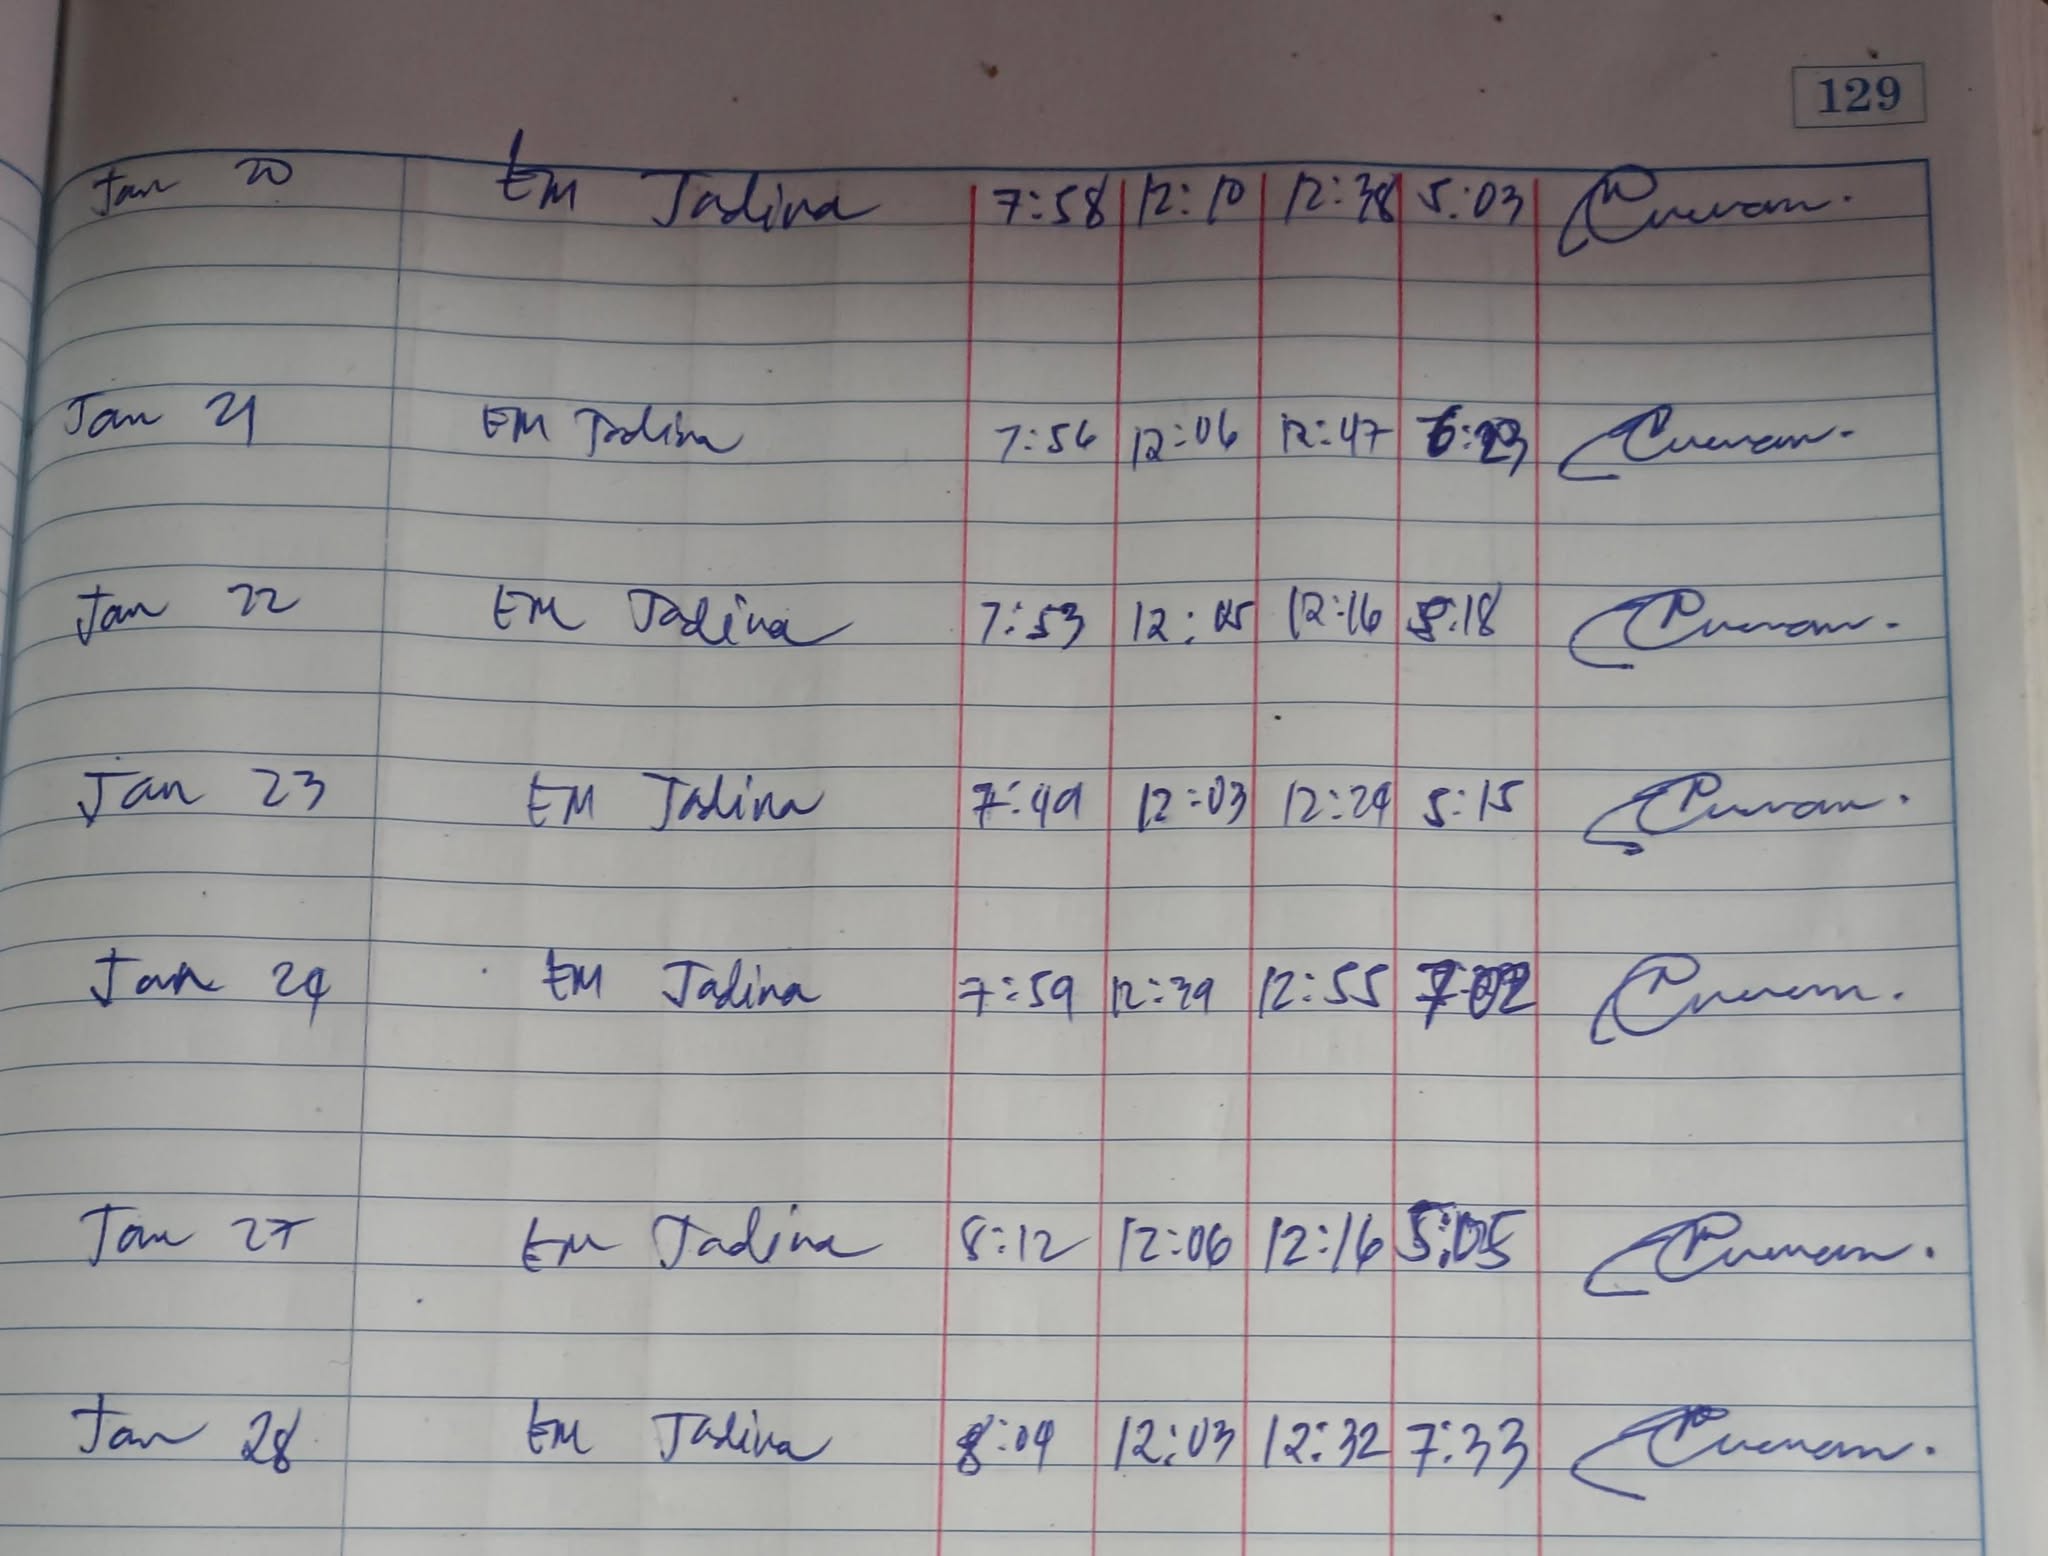 129
Jan 20 EM Jadina 7:58 12:10 12:38 5:03
Jan 21 EM Jadina 7:56 12:06 12:47
Jan 22 EM Jadina 7:53 12:05 12:16 5:18
Jan 23 EM Jadina 7:49 12:03 12:29 5:15
Jan 24 EM Jadina 7:59 12:39 12:55 7:02
Jan 27 EM Jadina 8:12 12:06 12:16 5:05
Jan 28 EM Jadina 8:09 12:03 12:32 7:33